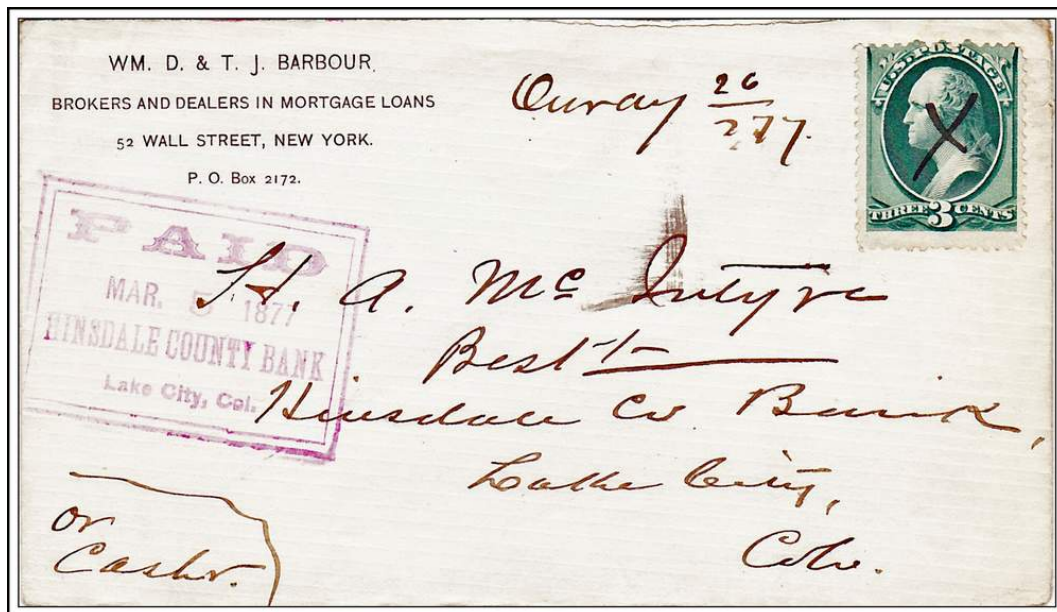 WM. D. & T. J. BARBOUR,
BROKERS AND DEALERS IN MORTGAGE LOANS
52 WALL STREET, NEW YORK.
P. O. Box 2172.
Ouray 26/277.
U.S. POSTAGE
THREE 3 CENTS
PAID
MAR. 5 1877
HINSDALE COUNTY BANK
Lake City, Col.
H. A. Mc Intyre
Hinsdale Co Bank,
Lake City,
Colo.
or
Cashr.